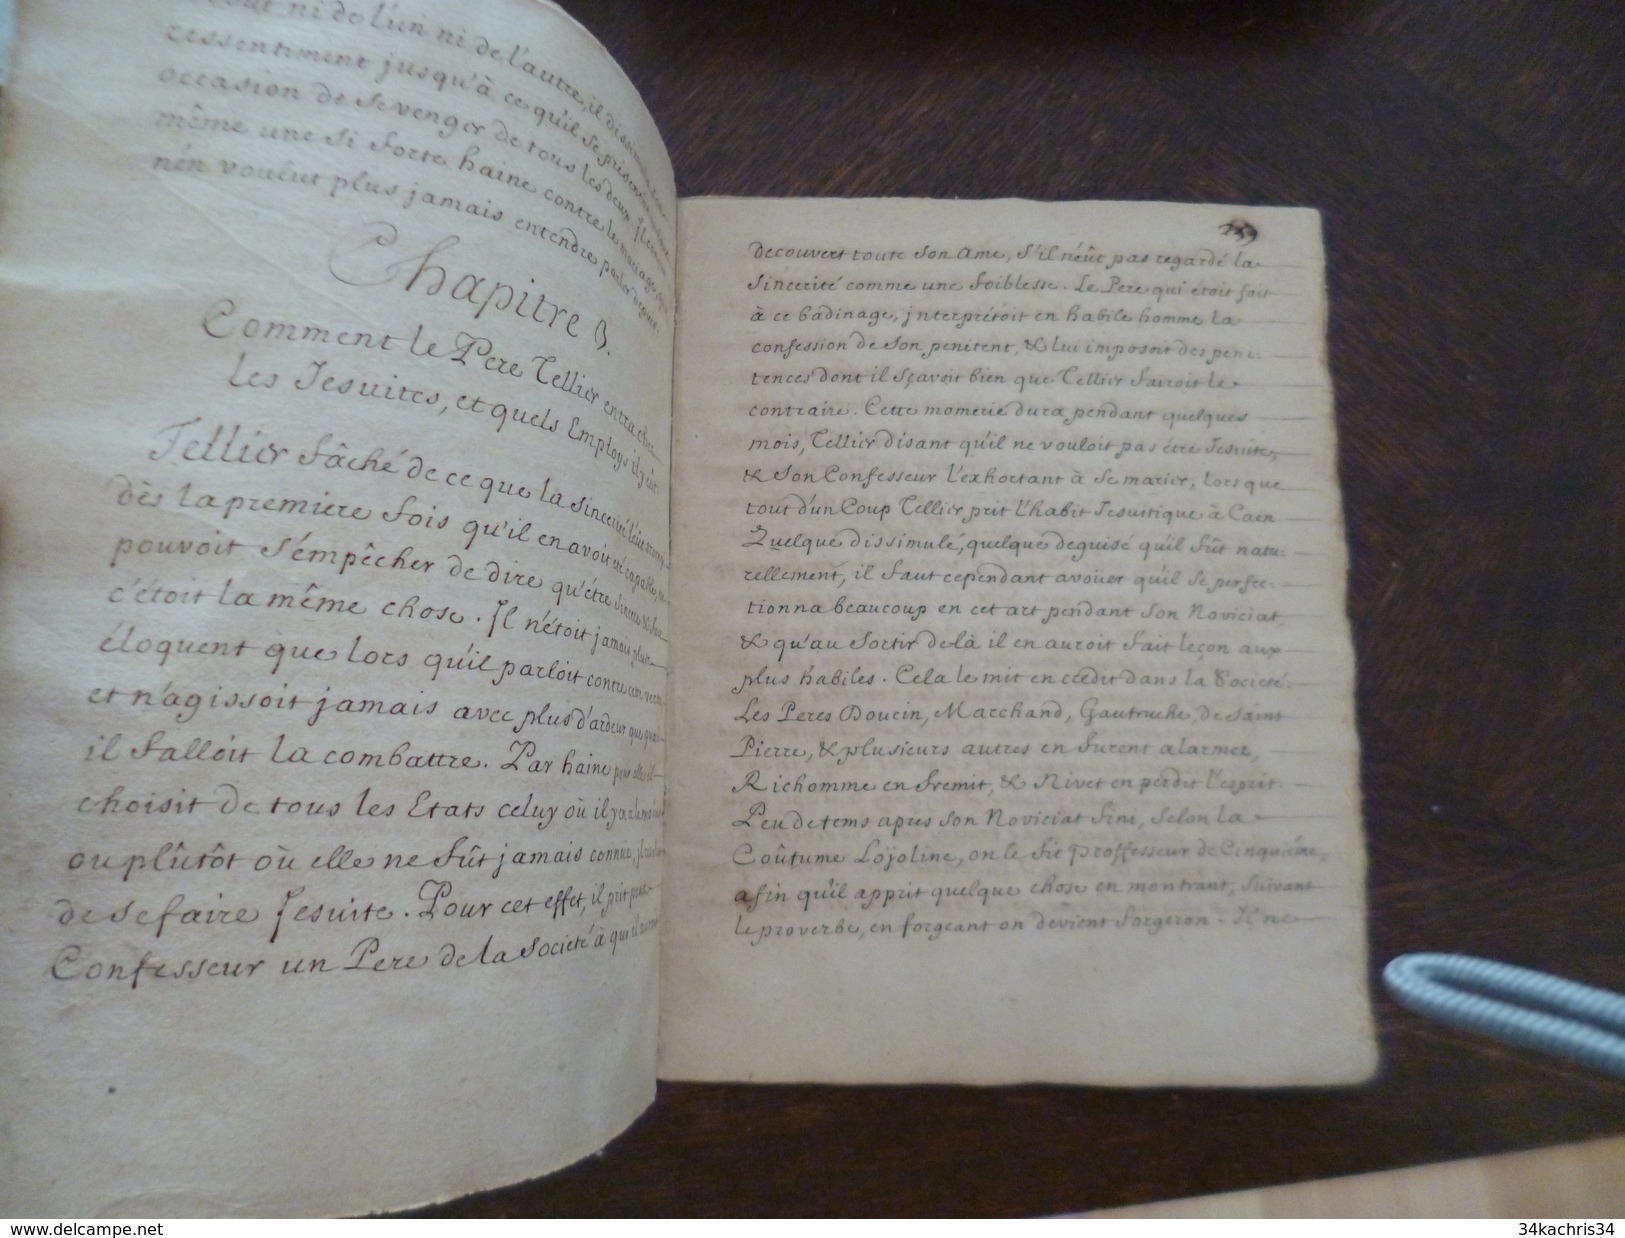 ni de l'un ni de l'autre, il
ressentiment jusqu'à ce qu'il se
occasion de se venger de tous les deux. Il
même une si forte haine contre le mariage,
n'en voulut plus jamais entendre parler depuis.
Chapitre 3.
Comment le Pere Tellier entra chez
les Jesuites, et quels Employs il y eût.
Tellier fâché de ce que la sincerité l'eût
dès la premiere fois qu'il en avoit été capable, ne
pouvoit s'émpêcher de dire qu'étre sincere &
c'étoit la même chose. Il n'étoit jamais plus
éloquent que lors qu'il parloit contre
et n'agissoit jamais avec plus d'ardeur que quand
il falloit la combattre. Par haine pour elle il
choisit de tous les Etats celuy où il y en a le moins
ou plûtôt où elle ne fût jamais connüe,
de se faire Jesuite. Pour cet effet, il prit pour
Confesseur un Pere de la Societé à qui il
decouvert toute son ame, s'il n'éût pas regardé la
sincerité comme une foiblesse. Le Pere qui étoit fait
à ce badinage, jnterprétoit en habile homme la
confession de son penitent, & lui imposoit des peni-
tences dont il sçavoit bien que Tellier fairoit le
contraire. Cette momerie dura pendant quelques
mois, Tellier disant qu'il ne vouloit pas étre Jesuite,
& son Confesseur l'exhortant à se marier, lors que
tout d'un Coup Tellier prit l'habit Jesuitique à Caën
Quelque dissimulé, quelque deguisé qu'il fût natu-
rellement, il faut cependant avoüer qu'il se perfec-
tionna beaucoup en cet art pendant son Noviciat,
& qu'au sortir de là il en auroit fait leçon aux
plus habiles. Cela le mit en credit dans la Societé.
Les Peres Doucin, Marchand, Gautruche, de Saint
Pierre, & plusieurs autres en furent alarmez,
Richomme en fremit, & Nivet en perdit l'esprit.
Peu de tems apres son Noviciat fini, selon la
Coûtume Loÿoline, on le fit proffesseur de Cinquiéme,
afin qu'il apprit quelque chose en montrant, suivant
le proverbe, en forgeant on devient forgeron. Il ne
www.delcampe.net
34kachris34